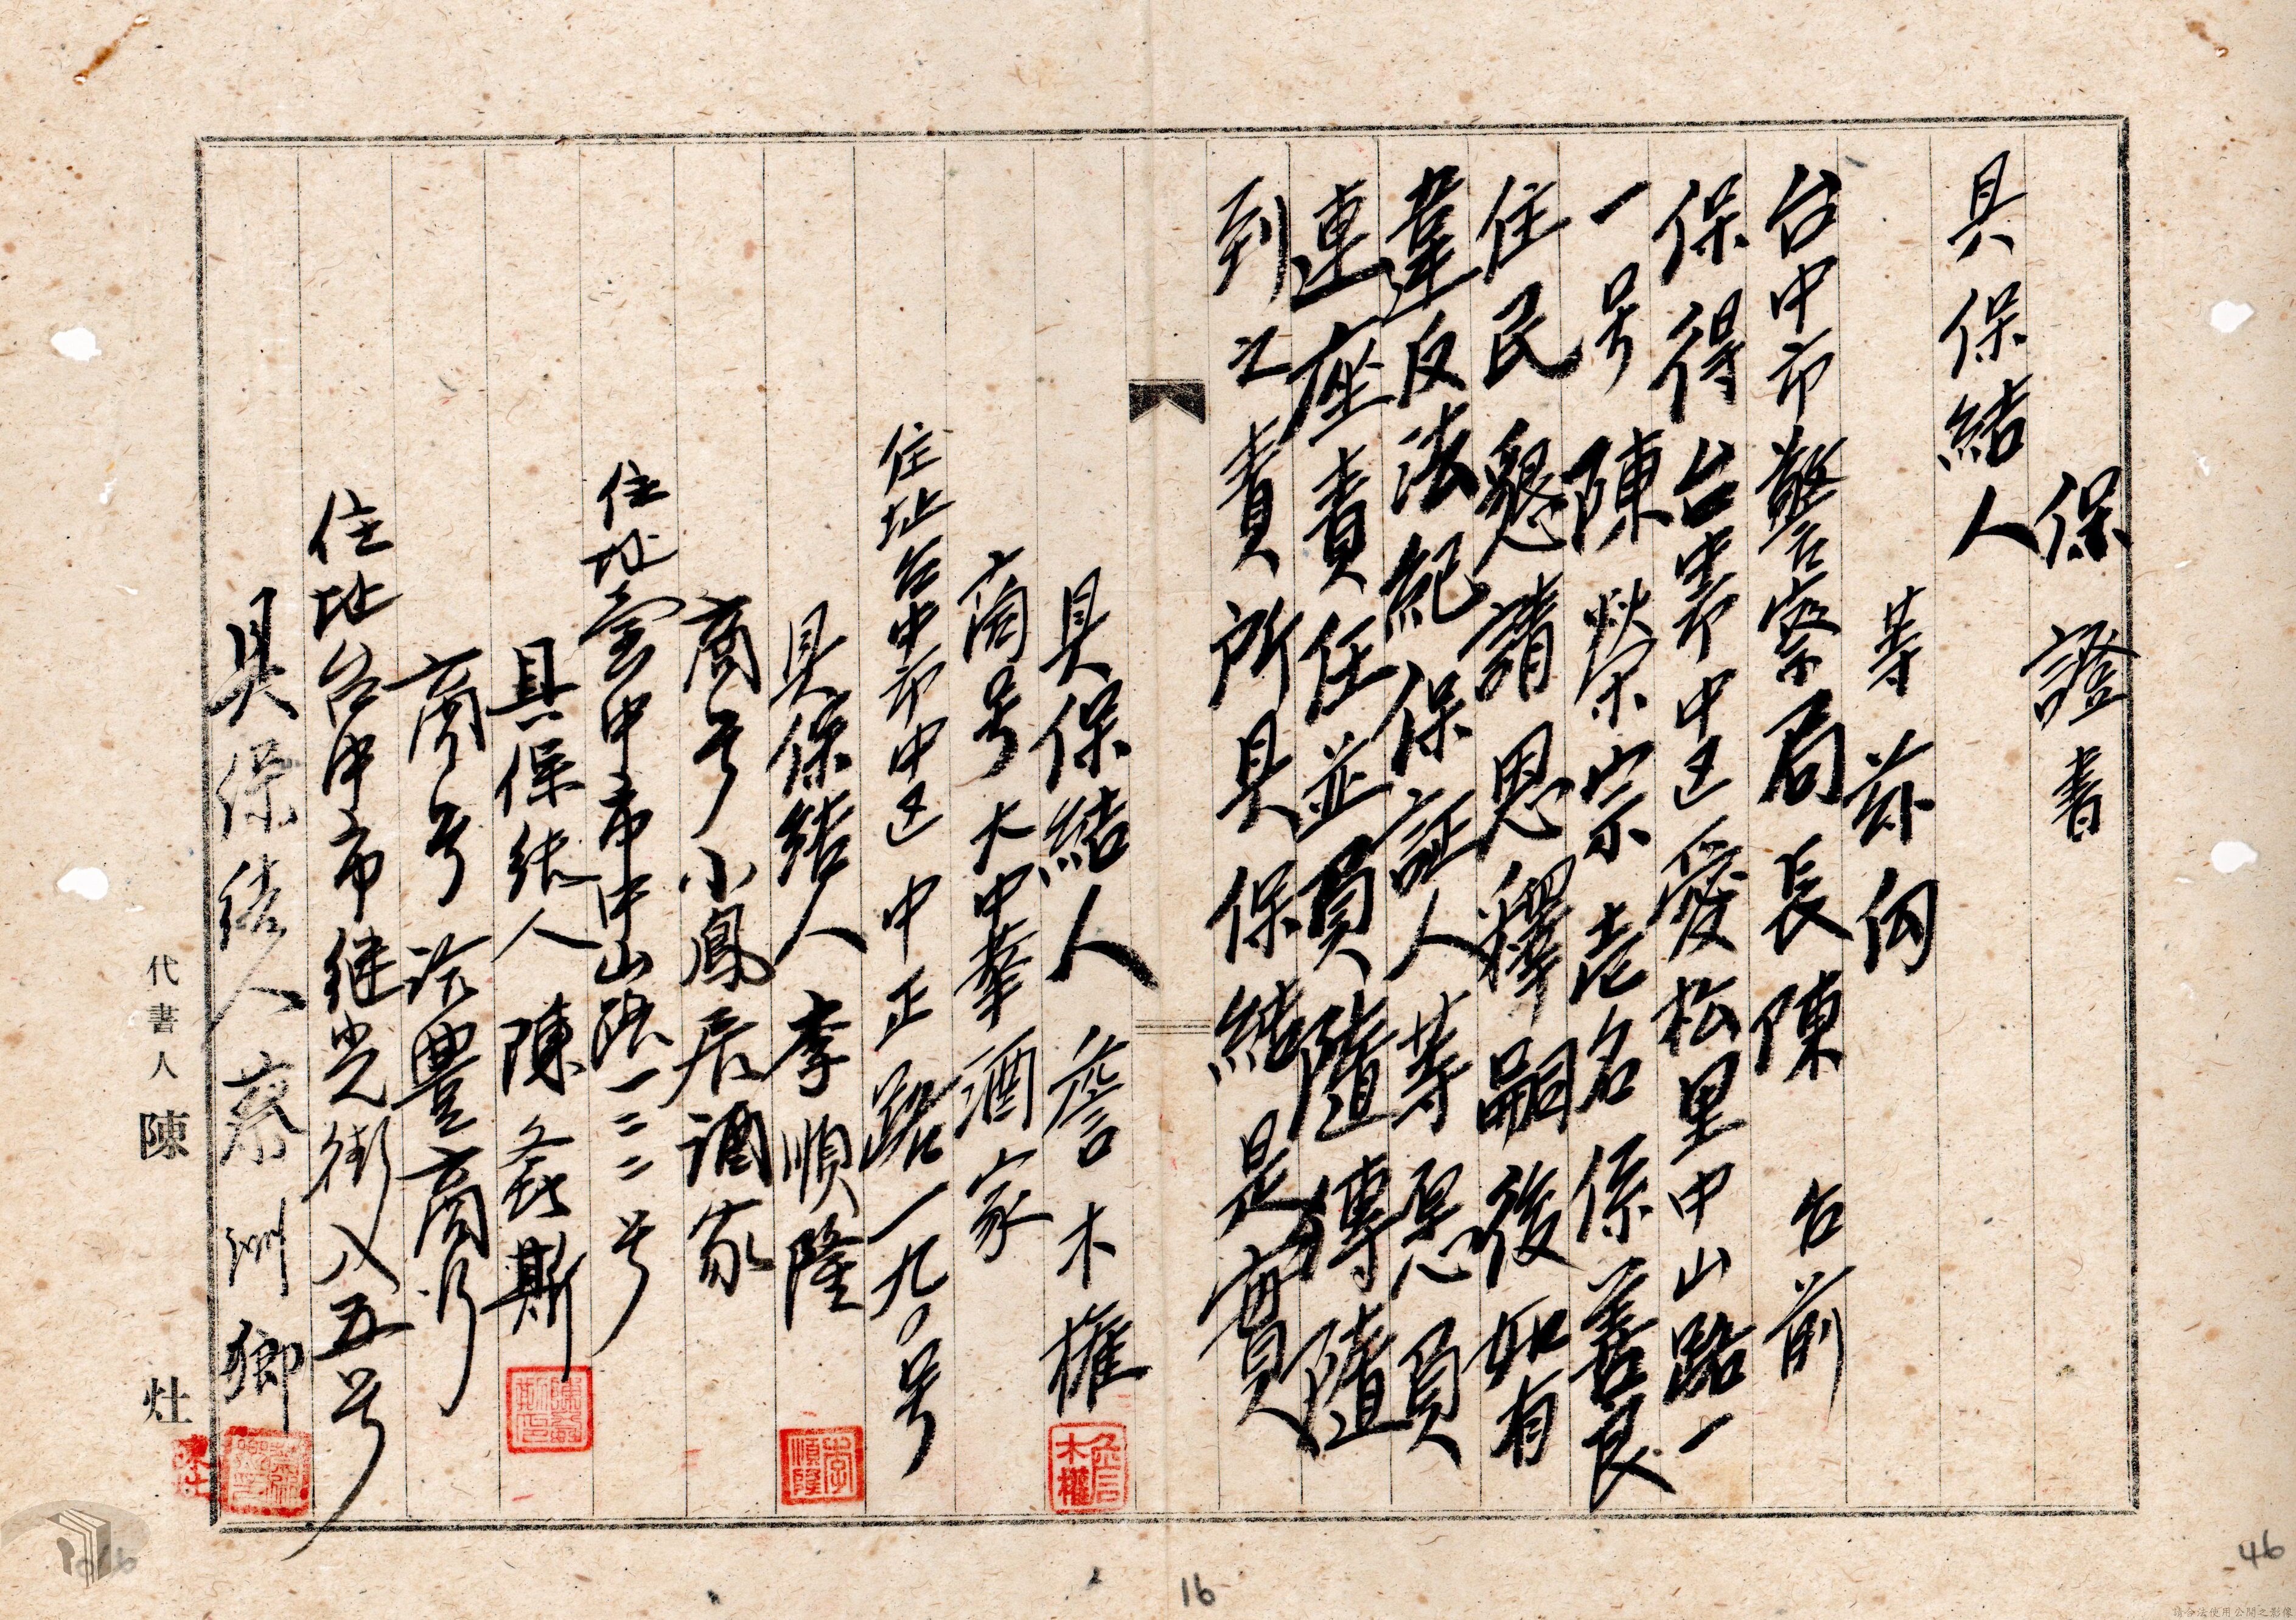 保證書
具保結人
等茲向
台中市警察局長陳 台前
保得台中市中区愛松里中山路一
一号陳榮宗壱名係善良
住民懇請恩釋嗣後如有
違反法紀保証人等愿負
連座責任並負隨傳隨
到之責所具保結是實
具保結人 詹木權
商号大中華酒家
住址台中市中区中正路一九〇号
具保結人 李順隆
商号小鳳居酒家
住址台中市中山路一三二号
具保結人 陳螽斯
商号 豐商行
住址台中市继光街八五号
具保结人蔡洲鄉
代書人 陳灶
詹木權
李順隆
16
46